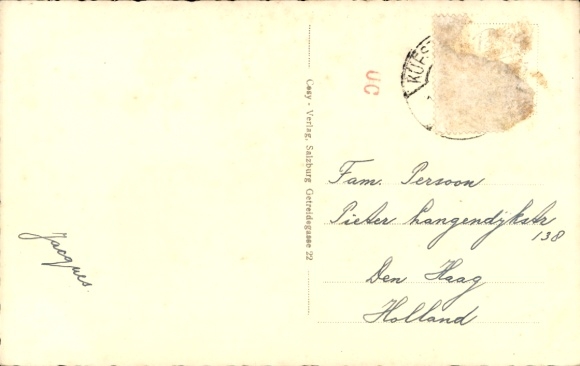 KUFS
UC
Cosy - Verlag, Salzburg Getreidegasse 22
Fam. Persoon
Pieter Langendijkstr
138
Den Haag
Holland
Jacques.